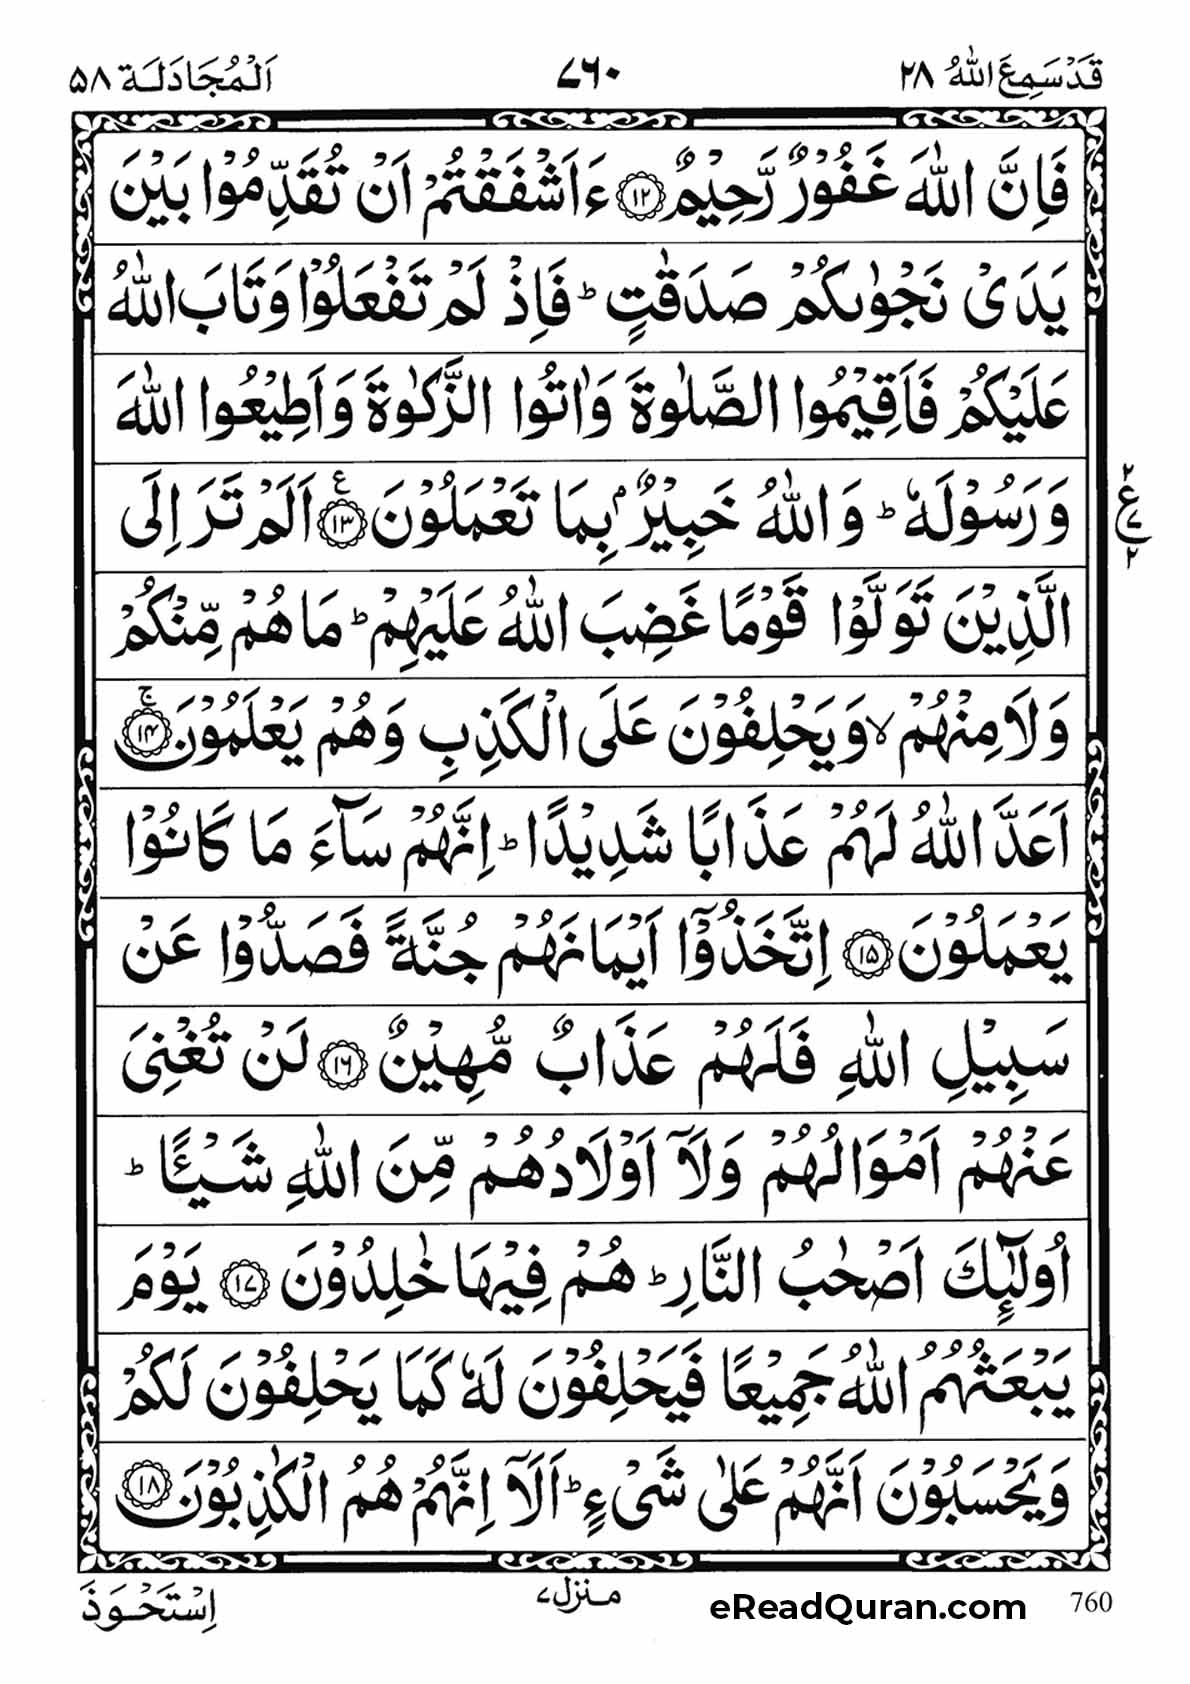 قَدۡسَمِعَ اللّٰهُ ۲۸
۷۶۰
اَلۡمُجَادَلَة ۵۸
فَاِنَّ اللّٰهَ غَفُوۡرٌ رَّحِيۡمٌ ۱۲ ءَاَشۡفَقۡتُمۡ اَنۡ تُقَدِّمُوۡا بَيۡنَ
يَدَىۡ نَجۡوٰٮكُمۡ صَدَقٰتٍ ؕ فَاِذۡ لَمۡ تَفۡعَلُوۡا وَتَابَ اللّٰهُ
عَلَيۡكُمۡ فَاَقِيۡمُوا الصَّلٰوةَ وَاٰتُوا الزَّكٰوةَ وَاَطِيۡعُوا اللّٰهَ
وَرَسُوۡلَهٗ ؕ وَاللّٰهُ خَبِيۡرٌۢ بِمَا تَعۡمَلُوۡنَ ۱۳ ع اَلَمۡ تَرَ اِلَى
الَّذِيۡنَ تَوَلَّوۡا قَوۡمًا غَضِبَ اللّٰهُ عَلَيۡهِمۡ ؕ مَا هُمۡ مِّنۡكُمۡ
وَلَا مِنۡهُمۡ ۙ وَيَحۡلِفُوۡنَ عَلَى الۡكَذِبِ وَهُمۡ يَعۡلَمُوۡنَ ۱۴ ج
اَعَدَّ اللّٰهُ لَهُمۡ عَذَابًا شَدِيۡدًا ؕ اِنَّهُمۡ سَآءَ مَا كَانُوۡا
يَعۡمَلُوۡنَ ۱۵ اِتَّخَذُوۡۤا اَيۡمَانَهُمۡ جُنَّةً فَصَدُّوۡا عَنۡ
سَبِيۡلِ اللّٰهِ فَلَهُمۡ عَذَابٌ مُّهِيۡنٌ ۱۶ لَنۡ تُغۡنِىَ
عَنۡهُمۡ اَمۡوَالُهُمۡ وَلَاۤ اَوۡلَادُهُمۡ مِّنَ اللّٰهِ شَيۡـًٔا ؕ
اُولٰٓٮِٕكَ اَصۡحٰبُ النَّارِ ؕ هُمۡ فِيۡهَا خٰلِدُوۡنَ ۱۷ يَوۡمَ
يَبۡعَثُهُمُ اللّٰهُ جَمِيۡعًا فَيَحۡلِفُوۡنَ لَهٗ كَمَا يَحۡلِفُوۡنَ لَكُمۡ
وَيَحۡسَبُوۡنَ اَنَّهُمۡ عَلٰى شَىۡءٍ ؕ اَلَاۤ اِنَّهُمۡ هُمُ الۡكٰذِبُوۡنَ ۱۸
۲
ع ۷
۲
اِسۡتَحۡوَذَ
منزل ۷
eReadQuran.com
760